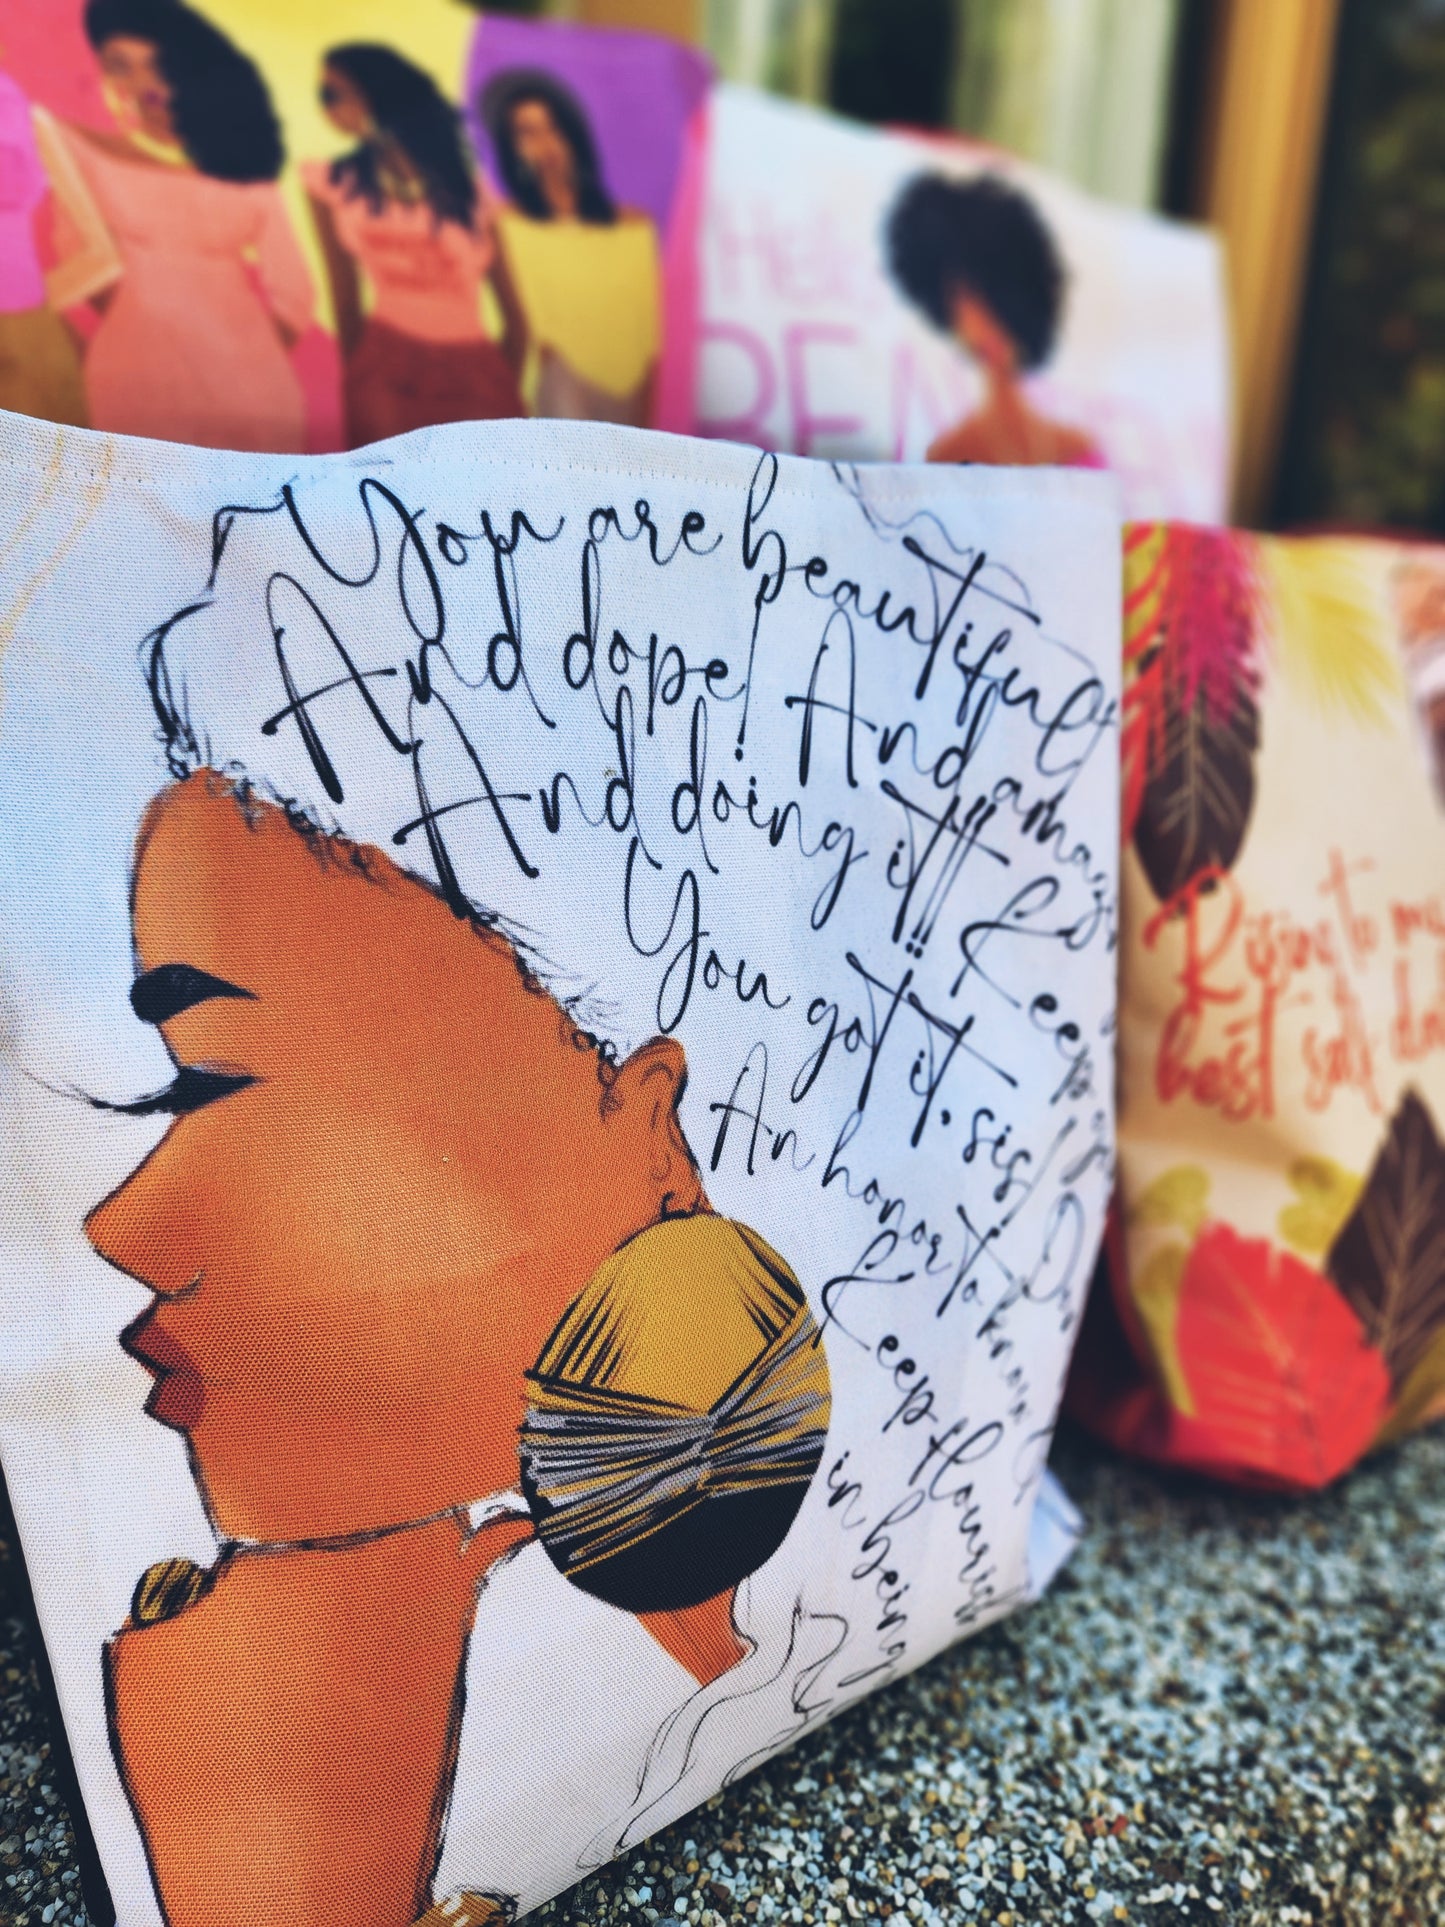 You are beautiful
And dope! And amazin
And doing it!!! Keep go
You got it, sis!
An honor to know
Keep flourish
in being
BE
Rising to my
best sis